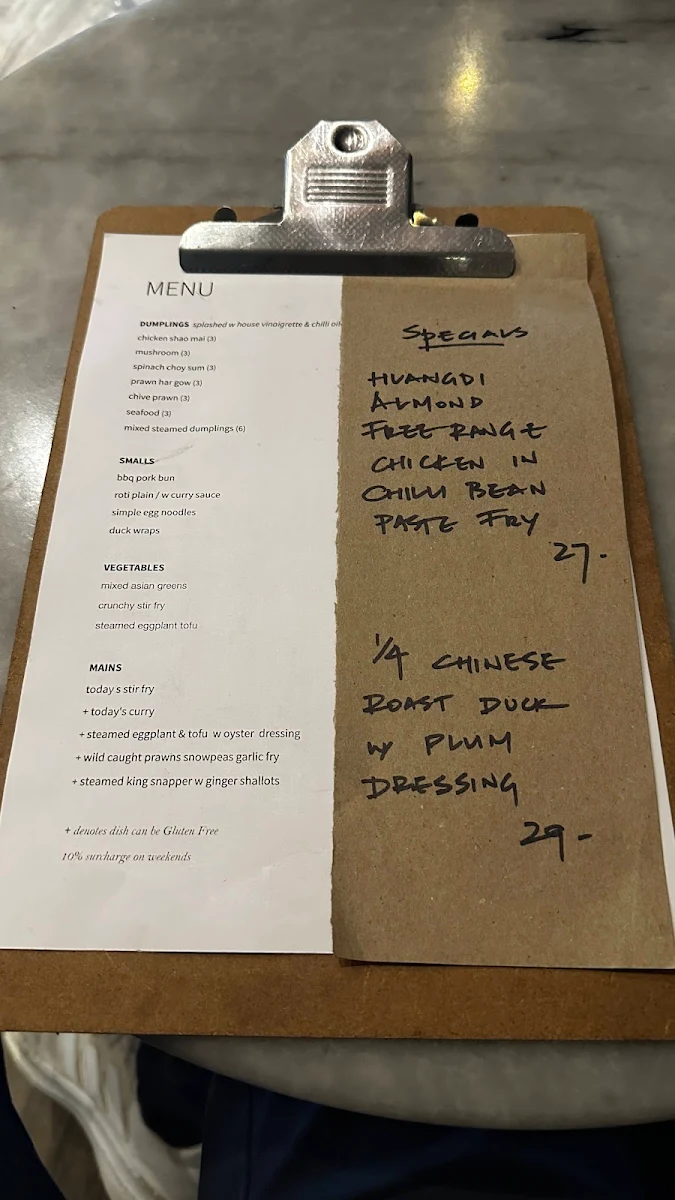 MENU
DUMPLINGS splashed w house vinaigrette & chilli oil
chicken shao mai (3)
mushroom (3)
spinach choy sum (3)
prawn har gow (3)
chive prawn (3)
seafood (3)
mixed steamed dumplings (6)
SMALLS
bbq pork bun
roti plain / w curry sauce
simple egg noodles
duck wraps
VEGETABLES
mixed asian greens
crunchy stir fry
steamed eggplant tofu
MAINS
today's stir fry
+ today's curry
+ steamed eggplant & tofu w oyster dressing
+ wild caught prawns snowpeas garlic fry
+ steamed king snapper w ginger shallots
+ denotes dish can be Gluten Free
10% surcharge on weekends
SPECIALS
HUANGDI
ALMOND
FREE RANGE
CHICKEN IN
CHILLI BEAN
PASTE FRY
27-
1/4 CHINESE
ROAST DUCK
w PLUM
DRESSING
29-